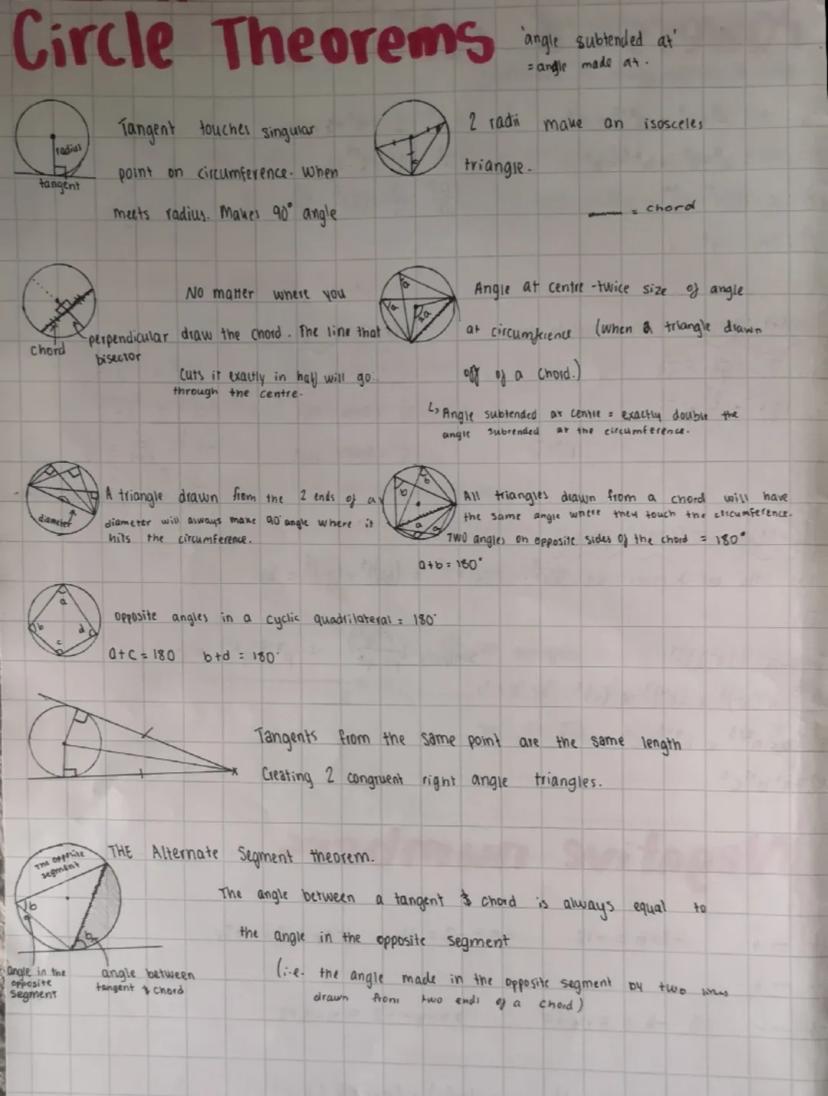 Circle Theorems
'angle subtended at'
= angle made at.
radius
tangent
Tangent touches singular
point on circumference. When
meets radius. Makes 90° angle
2 radii make an isosceles
triangle.
= chord
chord
perpendicular
bisector
No matter where you
draw the chord. The line that
cuts it exactly in half will go
through the centre.
a
a
2a
Angle at centre - twice size of angle
at circumference (when a triangle drawn
off of a chord.)
↳ Angle subtended at centre = exactly double the
angle subtended at the circumference.
diameter
A triangle drawn from the 2 ends of a
diameter will always make 90° angle where it
hits the circumference.
b
b
a
a
All triangles drawn from a chord will have
the same angle where they touch the circumference.
Two angles on opposite sides of the chord = 180°
a+b = 180°
a
b
d
c
Opposite angles in a cyclic quadrilateral = 180°
a+c = 180 b+d = 180°
Tangents from the same point are the same length
Creating 2 congruent right angle triangles.
The opposite
segment
b
a
angle in the
opposite
segment
angle between
tangent & chord
THE Alternate Segment theorem.
The angle between a tangent & chord is always equal to
the angle in the opposite segment
(i.e. the angle made in the opposite segment by two lines
drawn from two ends of a chord)